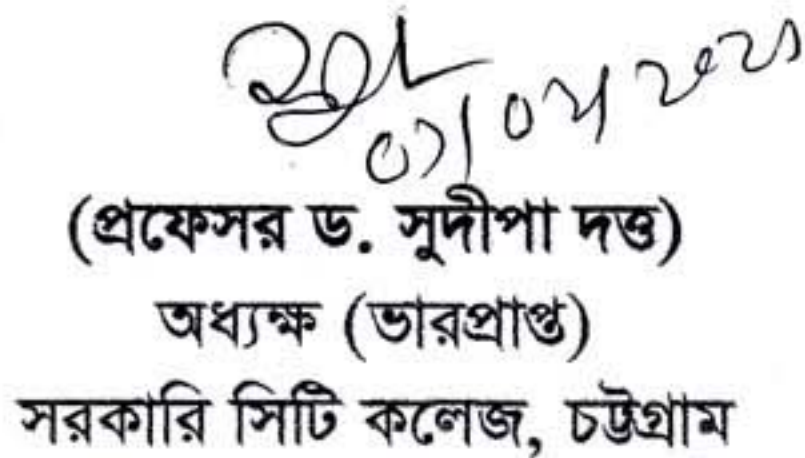 (প্রফেসর ড. সুদীপা দত্ত)
অধ্যক্ষ (ভারপ্রাপ্ত)
সরকারি সিটি কলেজ, চট্টগ্রাম